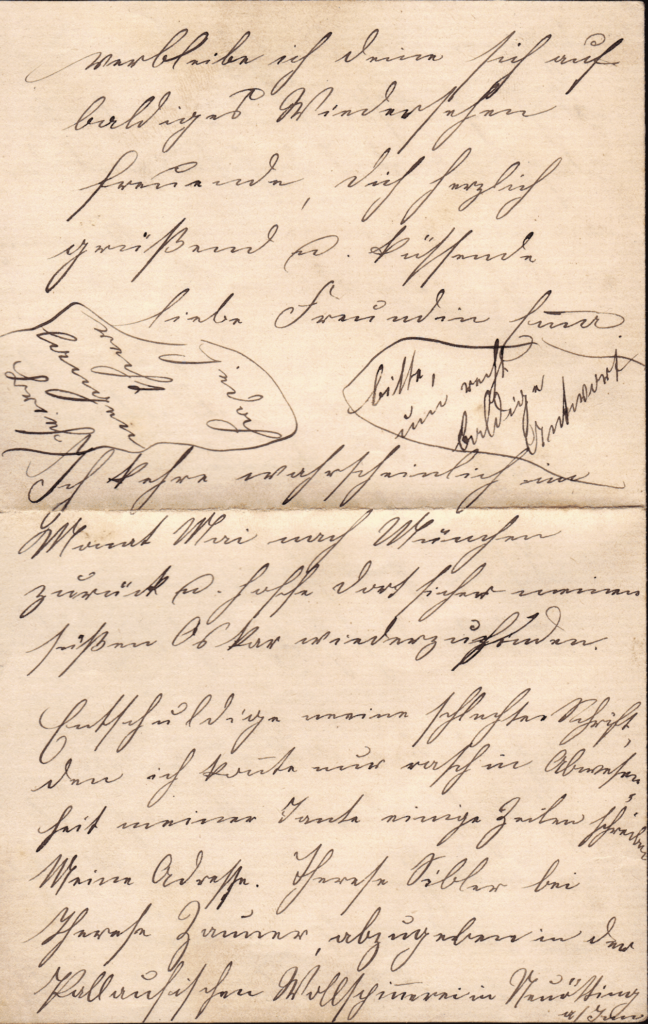 verbleibe ich deine sich auf
baldiges Wiedersehen
freuende, dich herzlich
grüßend u. küssende
liebe Freundin Emma
jedoch
recht
langen
Brief
bitte,
um recht
baldige
Antwort
Ich kehre wahrscheinlich im
Monat Mai nach München
zurück u. hoffe dort sicher meinen
süßen Oskar wiederzufinden.
Entschuldige meine schlechte Schrift,
den ich konnte nur rasch in Abwesen-
heit meiner Tante einige Zeilen schreiben
Meine Adresse. Therese Sibler bei
Therese Zauner, abzugeben in der
Pallaufischen Wollspinnerei in Neuötting
a/Inn